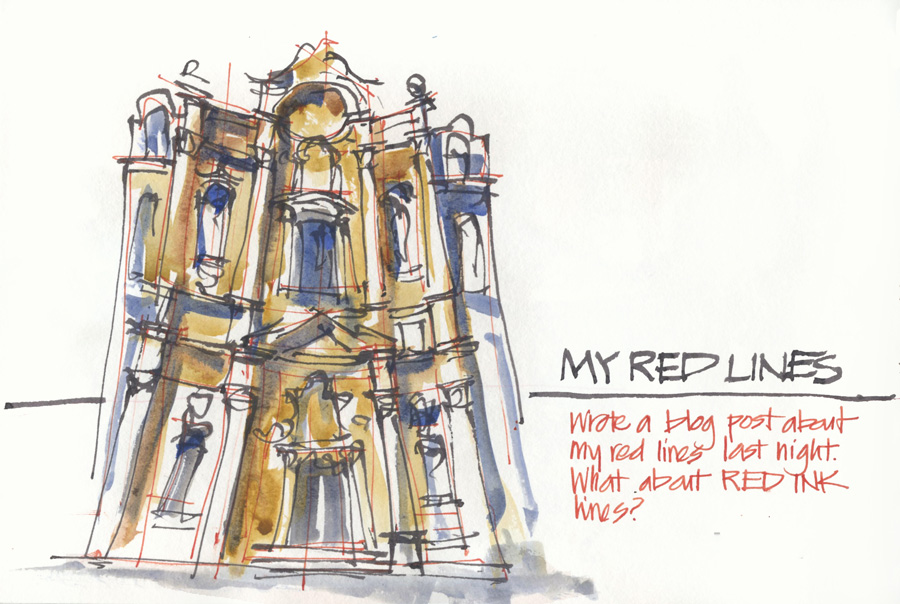 MY RED LINES
Wrote a blog post about
my red lines last night.
What about RED INK
lines?